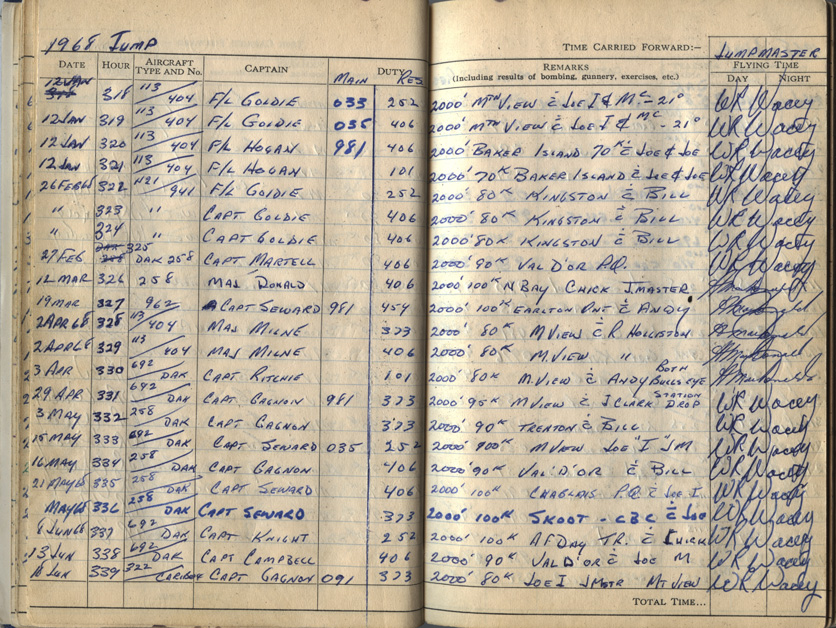 1968 JUMP
TIME CARRIED FORWARD:-
JUMPMASTER
DATE HOUR AIRCRAFT TYPE AND No. CAPTAIN MAIN DUTY RES. REMARKS (Including results of bombing, gunnery, exercises, etc.) FLYING TIME DAY NIGHT
12 JAN 318 113 404 F/L GOLDIE 033 252 2000' MTN VIEW c̄ JOE I & Mc - 21° WR Wacey
12 JAN 319 113 404 F/L GOLDIE 035 406 2000' MTN VIEW c̄ JOE I & Mc - 21° WR Wacey
12 JAN 320 113 404 F/L HOGAN 981 406 2000' BAKER ISLAND 70K c̄ JOE & JOE WR Wacey
12 JAN 321 113 404 F/L HOGAN 101 2000' 70K BAKER ISLAND c̄ JOE & JOE WR Wacey
26 FEB 322 1121 941 F/L GOLDIE 252 2000' 80K KINGSTON c̄ BILL WR Wacey
" 323 " CAPT GOLDIE 406 2000' 80K KINGSTON c̄ BILL WR Wacey
" 324 " CAPT GOLDIE 406 2000' 80K KINGSTON c̄ BILL WR Wacey
27 FEB 325 DAK 258 CAPT MARTELL 406 2000' 90K VAL D'OR P.Q. WR Wacey
12 MAR 326 258 MAJ DONALD 406 2000' 100K N BAY CHICK J.MASTER
19 MAR 327 962 CAPT SEWARD 981 454 2000' 100K EARLTON ONT c̄ ANDY
2 APR 68 328 113 404 MAJ MILNE 373 2000' 80K M VIEW c̄ R HOLLISTON
2 APR 68 329 113 404 MAJ MILNE 406 2000' 80K M.VIEW "
3 APR 330 692 DAK CAPT RITCHIE 101 2000' 80K M.VIEW c̄ ANDY BOTH BULLSEYE
29 APR 331 692 DAK CAPT GAGNON 981 373 2000' 95K M VIEW c̄ J CLARK STATION DROP WR Wacey
3 MAY 332 258 DAK CAPT GAGNON 373 2000' 90K TRENTON c̄ BILL WR Wacey
15 MAY 333 692 DAK CAPT SEWARD 035 252 2000' 100K M VIEW JOE "I" JM WR Wacey
16 MAY 334 258 DAK CAPT GAGNON 406 2000' 90K VAL'D'OR c̄ BILL WR Wacey
21 MAY 68 335 258 DAK CAPT SEWARD 406 2000' 100K P.Q. c̄ JOE I WR Wacey
MAY 68 336 258 DAK CAPT SEWARD 373 2000' 100K SKOOT - CBC c̄ JOE WR Wacey
6 JUN 68 337 692 DAK CAPT KNIGHT 252 2000' 100K A F DAY TR. c̄ CHICK WR Wacey
13 JUN 338 692 DAK CAPT CAMPBELL 406 2000' 90K VAL D'OR c̄ JOE M WR Wacey
JUN 339 322 CARIBOU CAPT GAGNON 091 373 2000' 80K JOE I JMSTR MT VIEW WR Wacey
TOTAL TIME...